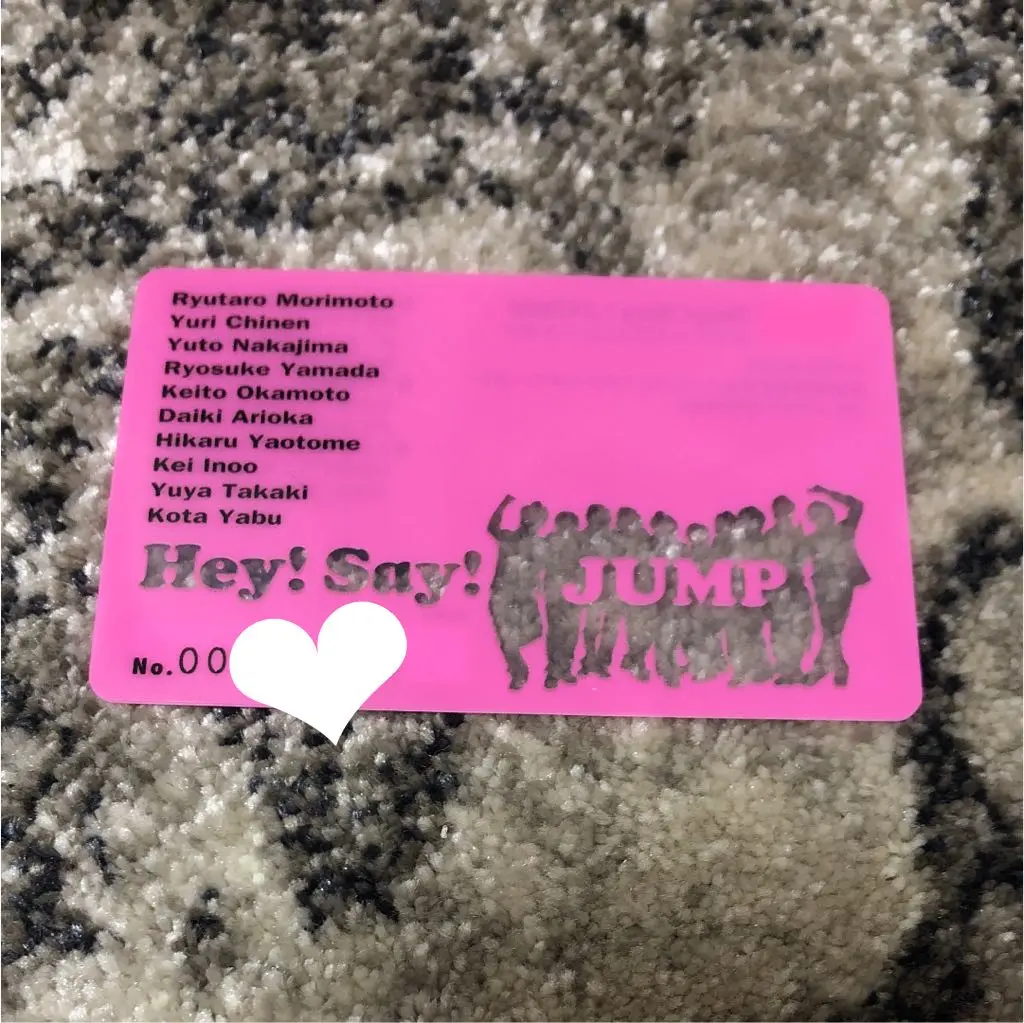 Ryutaro Morimoto
Yuri Chinen
Yuto Nakajima
Ryosuke Yamada
Keito Okamoto
Daiki Arioka
Hikaru Yaotome
Kei Inoo
Yuya Takaki
Kota Yabu
Hey! Say! JUMP
No.00